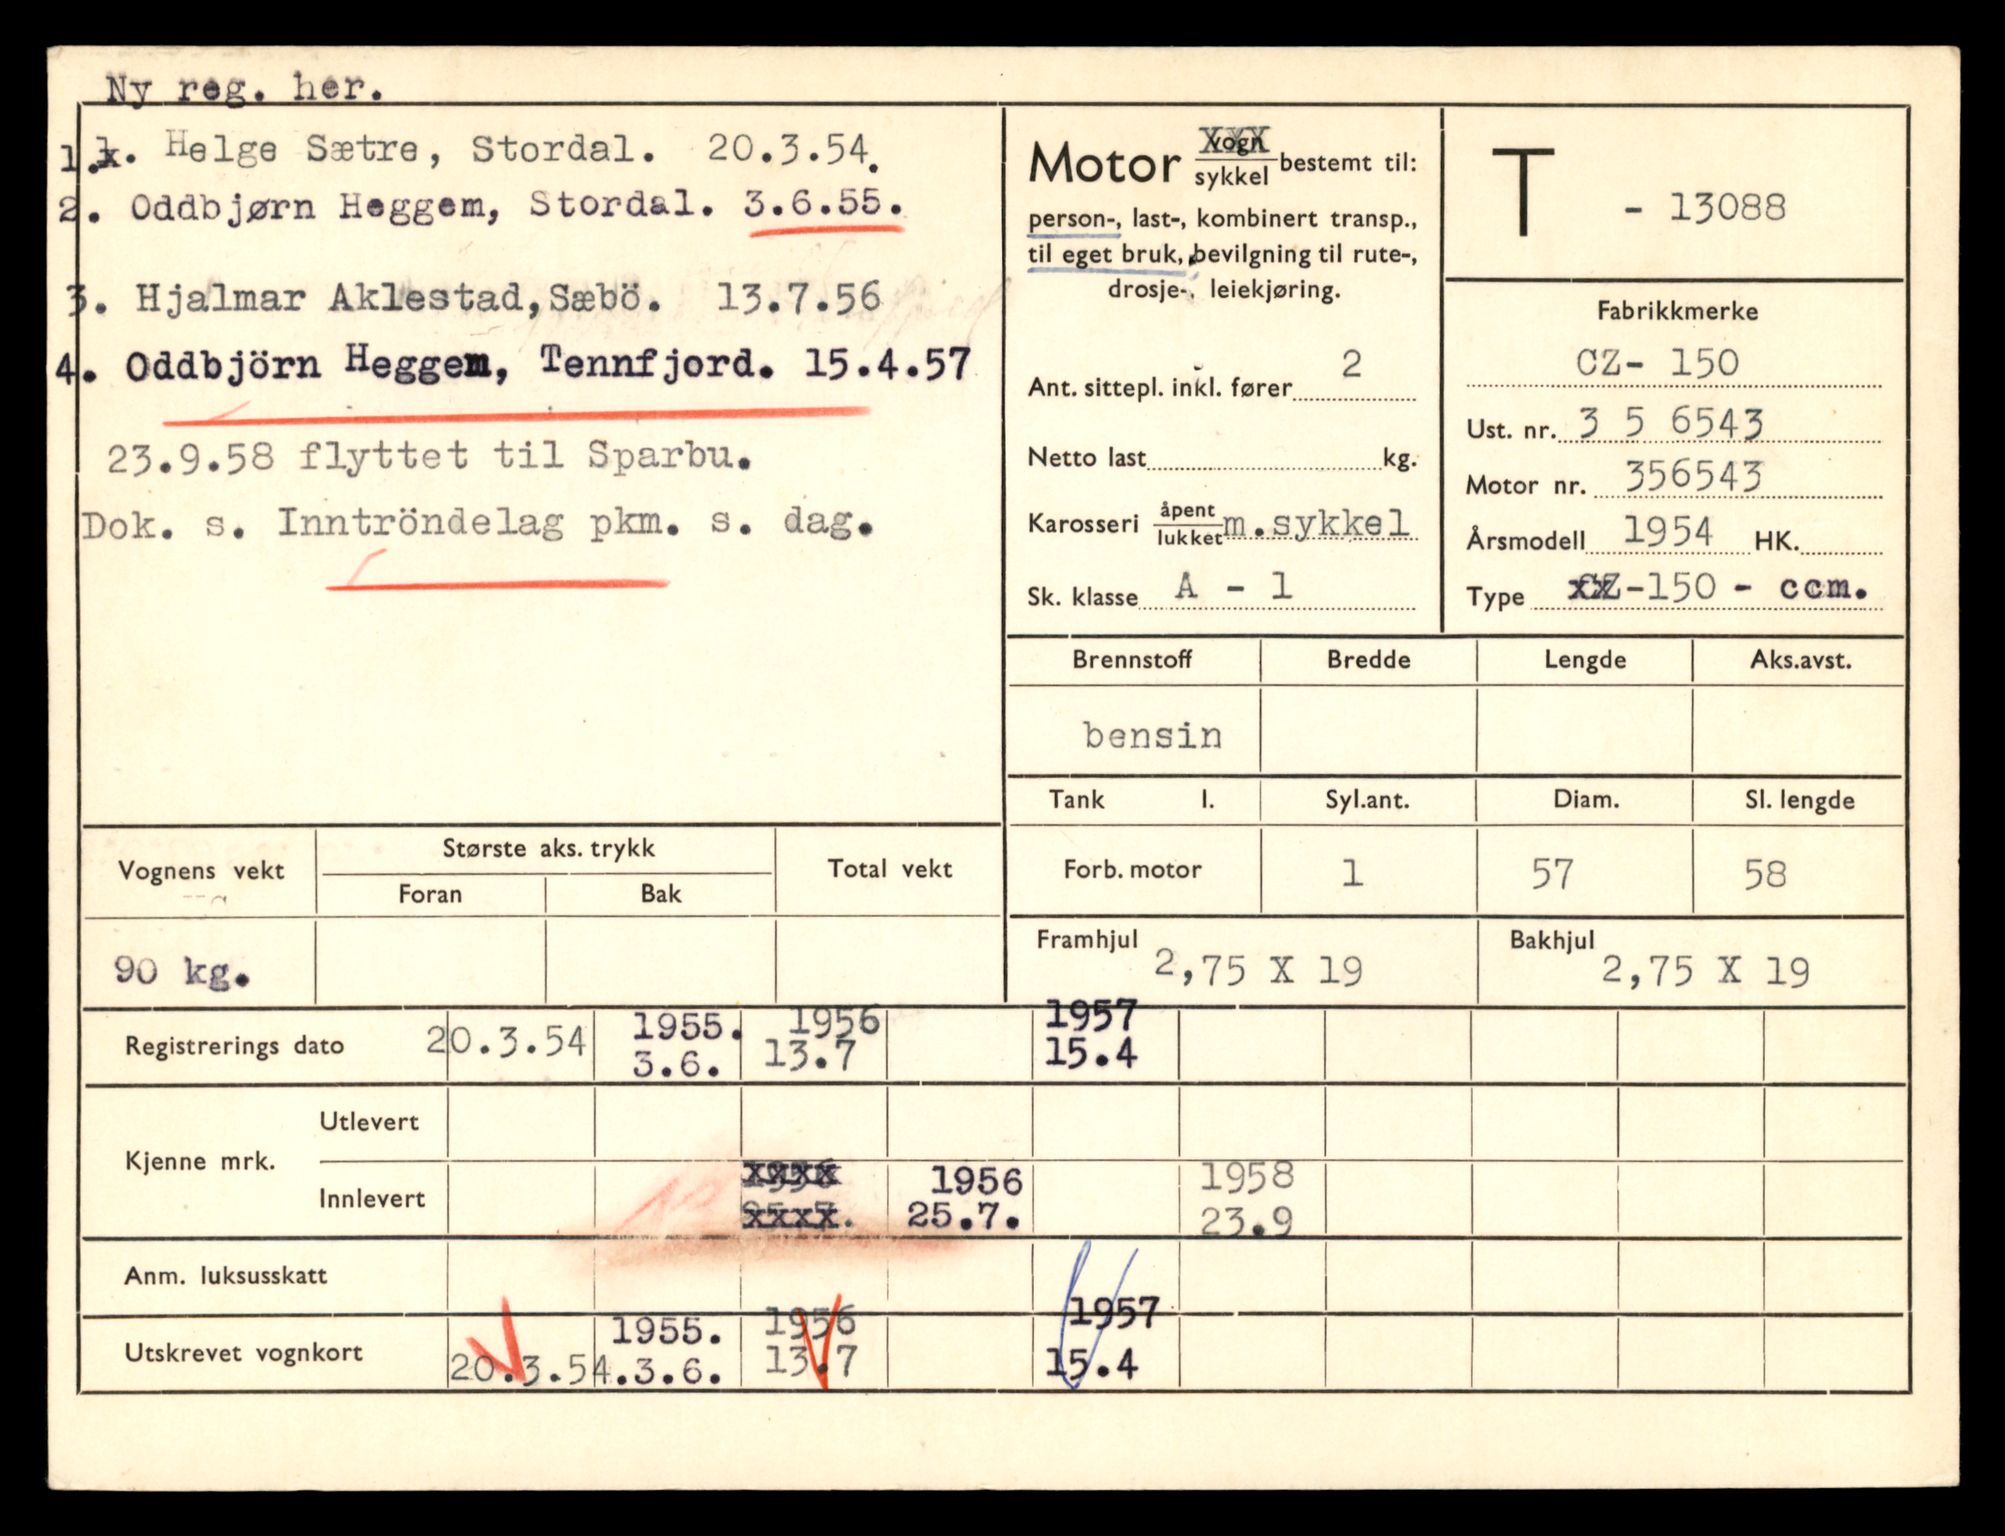 Ny reg. her.
1.x. Helge Sætre, Stordal. 20.3.54.
2. Oddbjørn Heggem, Stordal. 3.6.55.
3. Hjalmar Aklestad, Sæbö. 13.7.56
4. Oddbjörn Heggem, Tennfjord. 15.4.57
23.9.58 flyttet til Sparbu.
Dok. s. Inntröndelag pkm. s. dag.
Motor vogn/sykkel bestemt til:
person-, last-, kombinert transp.,
til eget bruk, bevilgning til rute-,
drosje-, leiekjøring.
Ant. sittepl. inkl. fører 2
Netto last kg.
Karosseri åpent/lukket m.sykkel
Sk. klasse A - 1
T - 13088
Fabrikkmerke
CZ- 150
Ust. nr. 3 5 6543
Motor nr. 356543
Årsmodell 1954 HK.
Type CZ-150 - ccm.
Brennstoff Bredde Lengde Aks.avst.
bensin
Tank l. Syl.ant. Diam. Sl. lengde
Forb. motor 1 57 58
Framhjul 2,75 X 19 Bakhjul 2,75 X 19
Vognens vekt Største aks. trykk Total vekt
Foran Bak
90 kg.
Registrerings dato 20.3.54 1955. 3.6. 1956 13.7 1957 15.4
Kjenne mrk.
Utlevert
Innlevert 1956 25.7. 1956 25.7. 1958 23.9
Anm. luksusskatt
Utskrevet vognkort 20.3.54. 1955. 3.6. 1956 13.7 1957 15.4